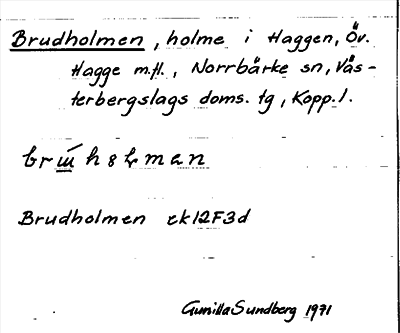 Brudholmen, holme i Haggen, Öv.
Hagge m.fl., Norrbärke sn, Väs-
terbergslags doms. tg, Kopp. l.
Brudholmen ek12F3d
Gunilla Sundberg 1971